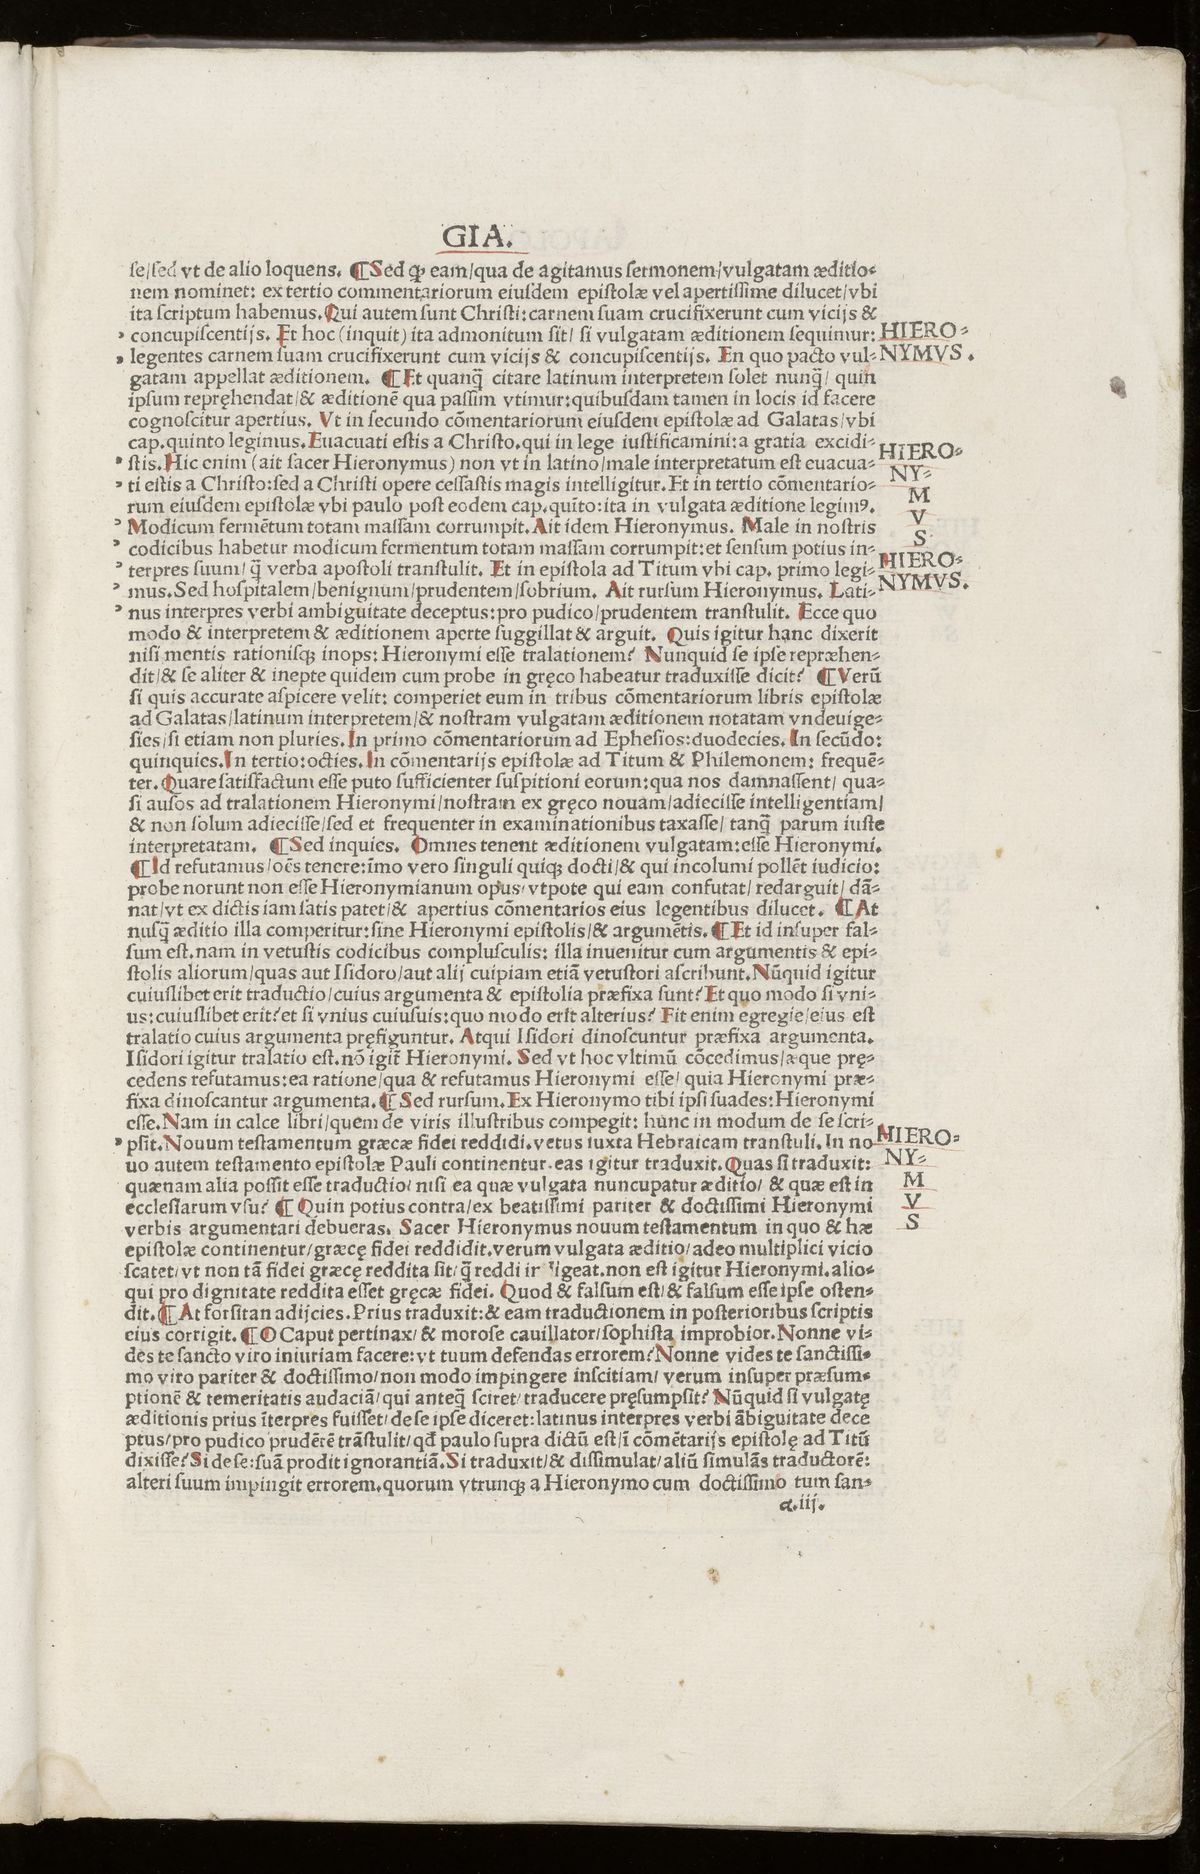 GIA.
se/sed vt de alio loquens. ¶Sed ꝙ eam/qua de agitamus sermonem/vulgatam æditio-
nem nominet: ex tertio commentariorum eiusdem epistolæ vel apertissime dilucet/vbi
ita scriptum habemus. Qui autem sunt Christi: carnem suam crucifixerunt cum vicijs &
concupiscentijs. Et hoc (inquit) ita admonitum sit/ si vulgatam æditionem sequimur:
legentes carnem suam crucifixerunt cum vicijs & concupiscentijs. En quo pacto vul-
gatam appellat æditionem. ¶Et quanq̃ citare latinum interpretem solet nunq̃/ quin
ipsum repręhendat/& æditionē qua passim vtimur: quibusdam tamen in locis id facere
cognoscitur apertius. Vt in secundo cōmentariorum eiusdem epistolæ ad Galatas/vbi
cap.quinto legimus. Euacuati estis a Christo.qui in lege iustificamini: a gratia excidi-
stis. Hic enim (ait sacer Hieronymus) non vt in latino/male interpretatum est euacua-
ti estis a Christo: sed a Christi opere cessastis magis intelligitur. Et in tertio cōmentario-
rum eiusdem epistolæ vbi paulo post eodem cap.quīto: ita in vulgata æditione legimꝰ.
Modicum fermētum totam massam corrumpit. Ait idem Hieronymus. Male in nostris
codicibus habetur modicum fermentum totam massam corrumpit: et sensum potius in-
terpres suum/ q̃ verba apostoli transtulit. Et in epistola ad Titum vbi cap. primo legi-
mus. Sed hospitalem/benignum/prudentem/sobrium. Ait rursum Hieronymus. Lati-
nus interpres verbi ambiguitate deceptus: pro pudico/prudentem transtulit. Ecce quo
modo & interpretem & æditionem aperte suggillat & arguit. Quis igitur hanc dixerit
nisi mentis rationisqȝ inops: Hieronymi esse tralationem? Nunquid se ipse repræhen-
dit/& se aliter & inepte quidem cum probe in gręco habeatur traduxisse dicit? ¶Verū
si quis accurate aspicere velit: comperiet eum in tribus cōmentariorum libris epistolæ
ad Galatas/latinum interpretem/& nostram vulgatam æditionem notatam vndeuige-
sies/si etiam non pluries. In primo cōmentariorum ad Ephesios: duodecies. In secūdo:
quinquies. In tertio: octies. In cōmentarijs epistolæ ad Titum & Philemonem: frequē-
ter. Quare satisfactum esse puto sufficienter suspitioni eorum: qua nos damnassent/ qua-
si ausos ad tralationem Hieronymi/nostram ex gręco nouam/adiecisse intelligentiam/
& non solum adiecisse/sed et frequenter in examinationibus taxasse/ tanq̃ parum iuste
interpretatam. ¶Sed inquies. Omnes tenent æditionem vulgatam: esse Hieronymi.
¶Id refutamus/oēs tenere: īmo vero singuli quiqȝ docti/& qui incolumi pollēt iudicio:
probe norunt non esse Hieronymianum opus/vtpote qui eam confutat/ redarguit/ dā-
nat/vt ex dictis iam satis patet/& apertius cōmentarios eius legentibus dilucet. ¶At
nusq̃ æditio illa comperitur: sine Hieronymi epistolis/& argumētis. ¶Et id insuper fal-
sum est.nam in vetustis codicibus complusculis: illa inuenitur cum argumentis & epi-
stolis aliorum/quas aut Isidoro/aut alij cuipiam etiā vetustori ascribunt. Nūquid igitur
cuiuslibet erit traductio/cuius argumenta & epistolia præfixa sunt? Et quo modo si vni-
us: cuiuslibet erit? et si vnius cuiusuis: quo modo erit alterius? Fit enim egregie/eius est
tralatio cuius argumenta pręfiguntur. Atqui Isidori dinoscuntur præfixa argumenta.
Isidori igitur tralatio est.nō igit̃ Hieronymi. Sed vt hoc vltimū cōcedimus/æque prę-
cedens refutamus: ea ratione/qua & refutamus Hieronymi esse/ quia Hieronymi præ-
fixa dinoscantur argumenta. ¶Sed rursum. Ex Hieronymo tibi ipsi suades: Hieronymi
esse. Nam in calce libri/quem de viris illustribus compegit: hunc in modum de se scri-
psit. Nouum testamentum græcæ fidei reddidi.vetus iuxta Hebraicam transtuli. In no
uo autem testamento epistolæ Pauli continentur.eas igitur traduxit. Quas si traduxit:
quænam alia possit esse traductio/ nisi ea quæ vulgata nuncupatur æditio/ & quæ est in
ecclesiarum vsu? ¶Quin potius contra/ex beatissimi pariter & doctissimi Hieronymi
verbis argumentari debueras. Sacer Hieronymus nouum testamentum in quo & hæ
epistolæ continentur/græcę fidei reddidit.verum vulgata æditio/adeo multiplici vicio
scatet/vt non tā fidei græcę reddita sit/q̃ reddi igeat.non est igitur Hieronymi.alio-
qui pro dignitate reddita esset gręcæ fidei. Quod & falsum est/& falsum esse ipse osten-
dit. ¶At forsitan adijcies. Prius traduxit: & eam traductionem in posterioribus scriptis
eius corrigit. ¶O Caput pertinax/& morose cauillator/sophista improbior. Nonne vi-
des te sancto viro iniuriam facere: vt tuum defendas errorem? Nonne vides te sanctissi-
mo viro pariter & doctissimo/non modo impingere inscitiam/ verum insuper præsum-
ptionē & temeritatis audaciā/ qui anteq̃ sciret/ traducere pręsumpsit? Nūquid si vulgatę
æditionis prius īterpres fuisset/de se ipse diceret: latinus interpres verbi ābiguitate dece
ptus/pro pudico prudētē trāstulit/qđ paulo supra dictū est/ī cōmētarijs epistolę ad Titū
dixisse? Si de se: suā prodit ignorantiā. Si traduxit/& dissimulat/aliū simulās traductorē:
alteri suum impingit errorem.quorum vtrunqȝ a Hieronymo cum doctissimo tum san-
a.iij.
HIERO-
NYMVS.
HIERO-
NY-
M
V
S
HIERO-
NYMVS.
HIERO-
NY-
M
V
S